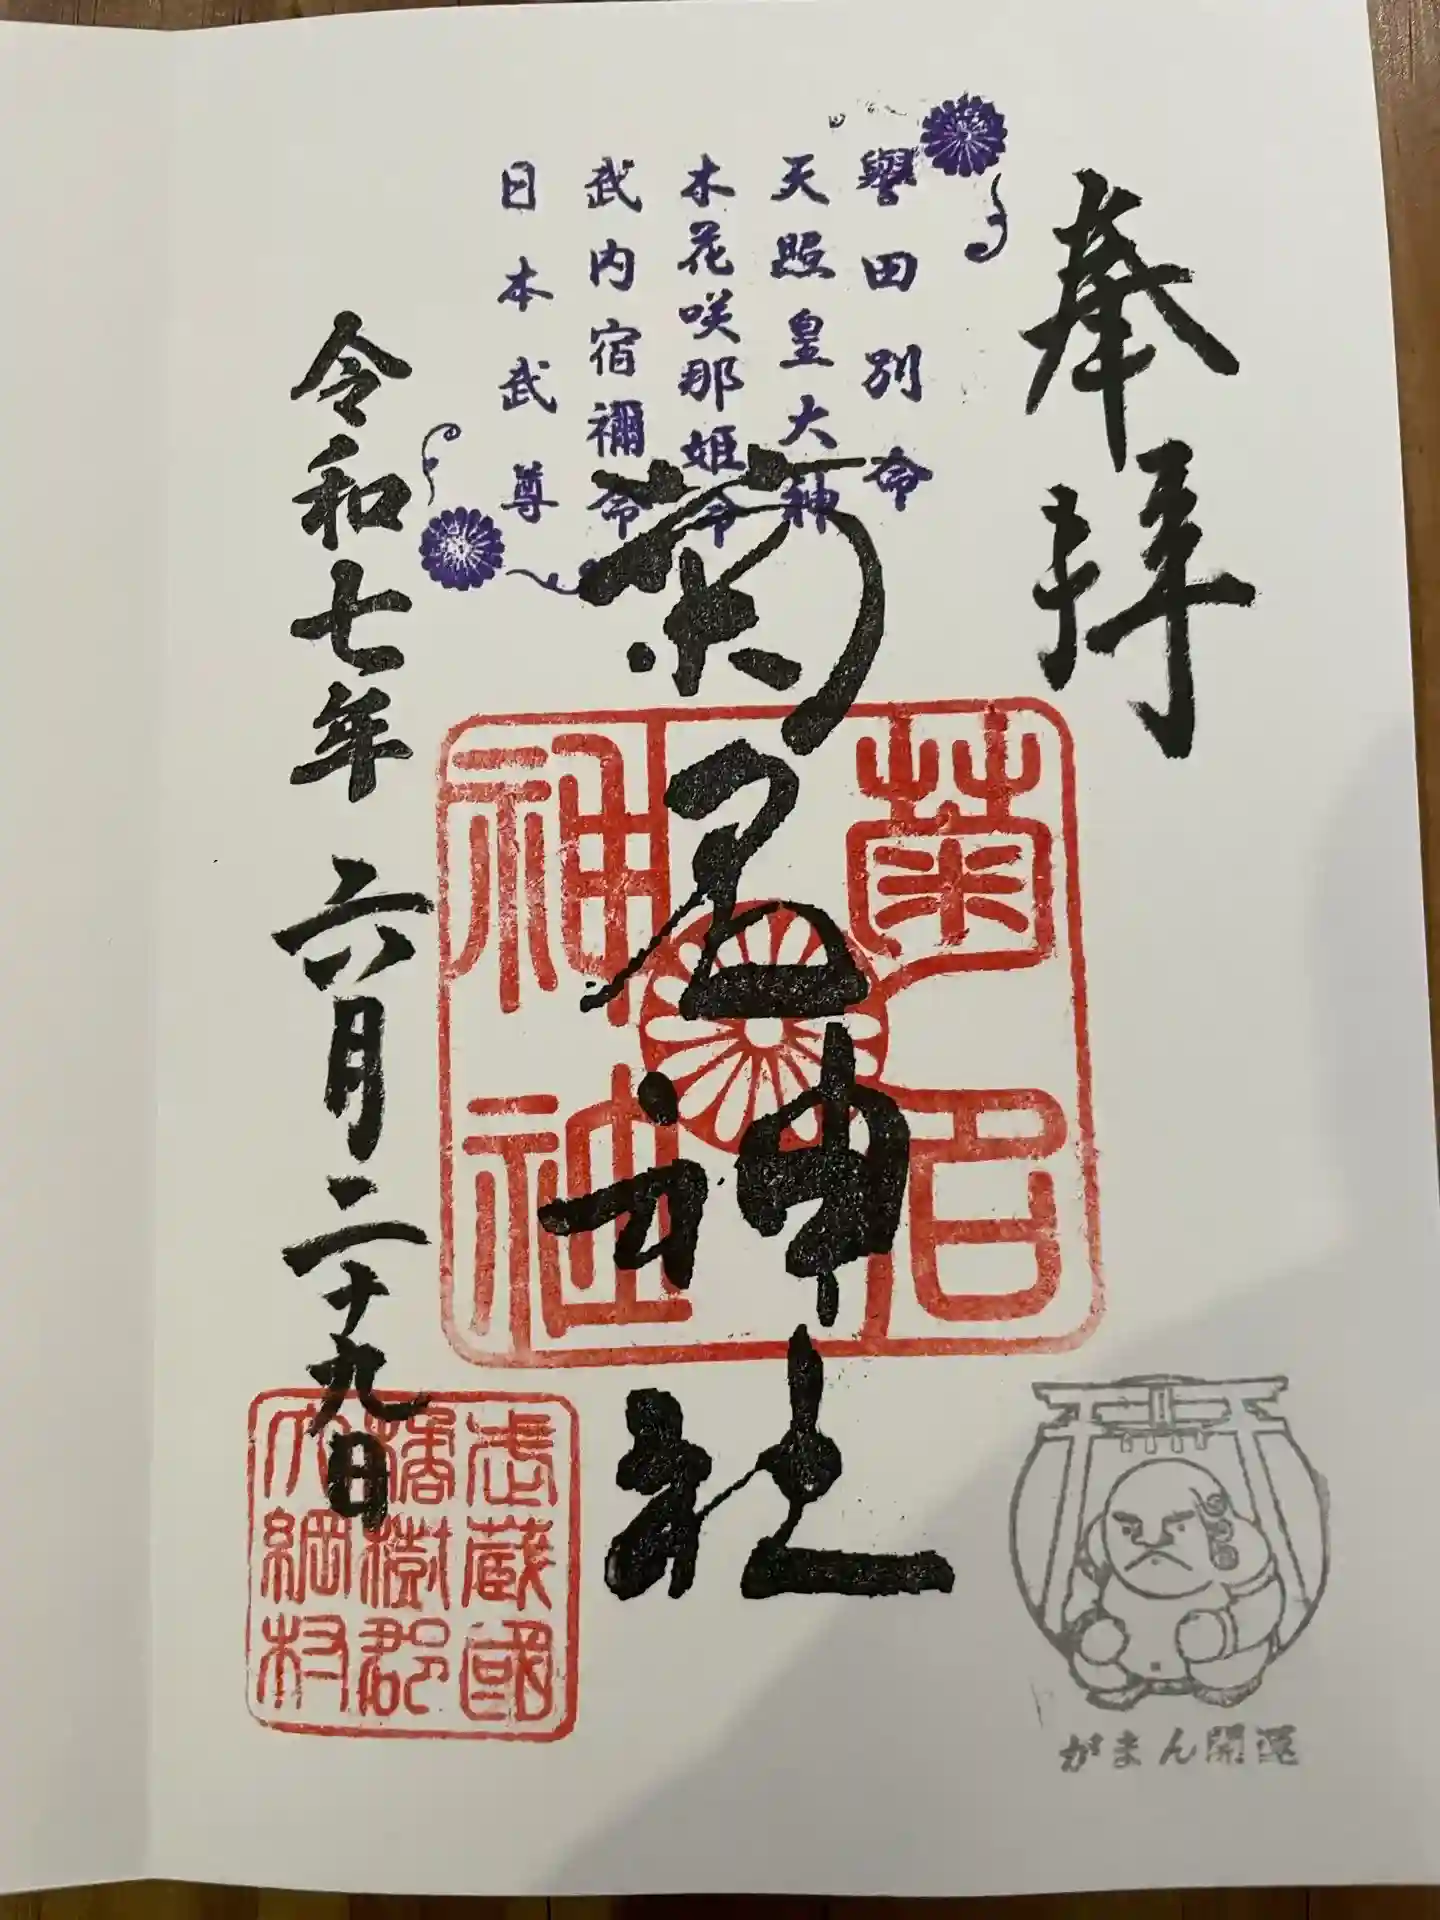 奉拝
譽田別命
天照皇大神
木花咲那姫命
武内宿禰命
日本武尊
菊名神社
菊名
神社
令和七年六月二十九日
武蔵國
橘樹郡
大綱村
がまん開運